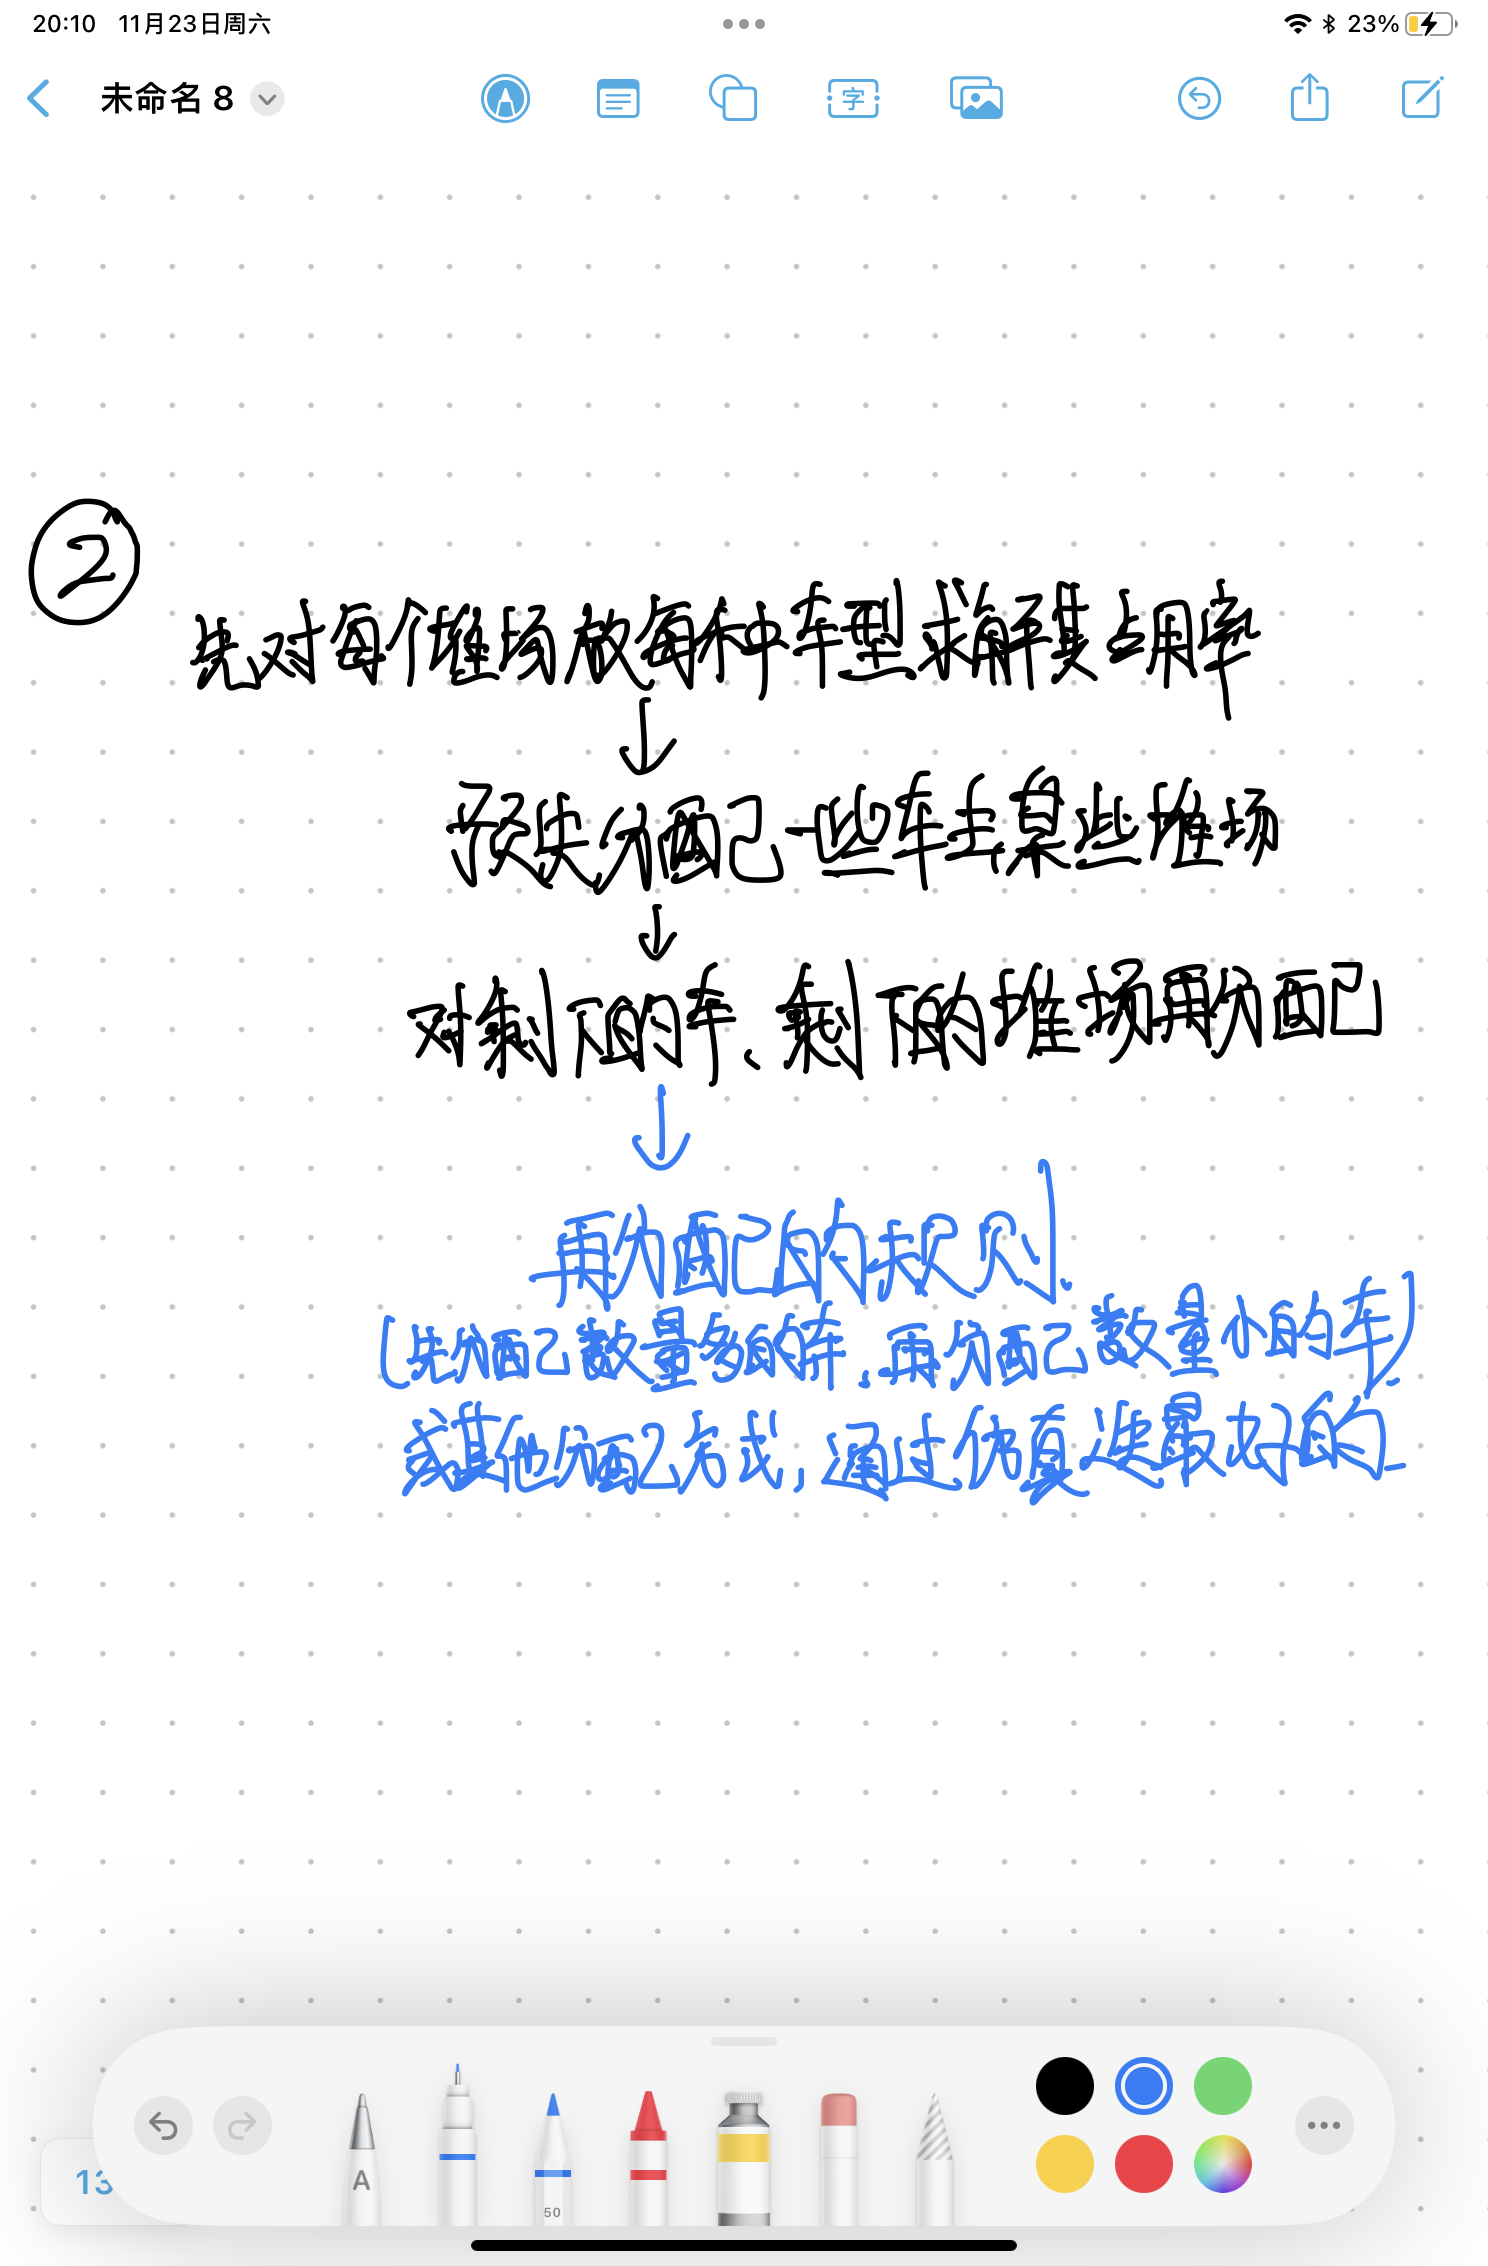 20:10 11月23日周六
23%
未命名 8
字
②
先对每个堆场放每种车型求解其占用率
↓
预先分配一些车去某些堆场
↓
对剩下的车、剩下的堆场再分配
↓
再分配的规则
(先分配数量多的车,再分配数量小的车)
或其他分配方式,通过仿真选最好的
A
50
13